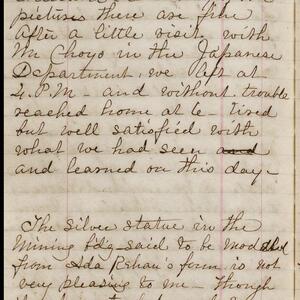 pictures there are fine
After a little visit with
Mr Choyo in the Japanese
Department we left at
4. P.M - and without trouble
reached home at 6 - tired
but well satisfied with
what we had seen and
and learned on this day -
The silver statue in the
Mining bldg - said to be modeled
from Ada Rehan's form is not
very pleasing to me - though